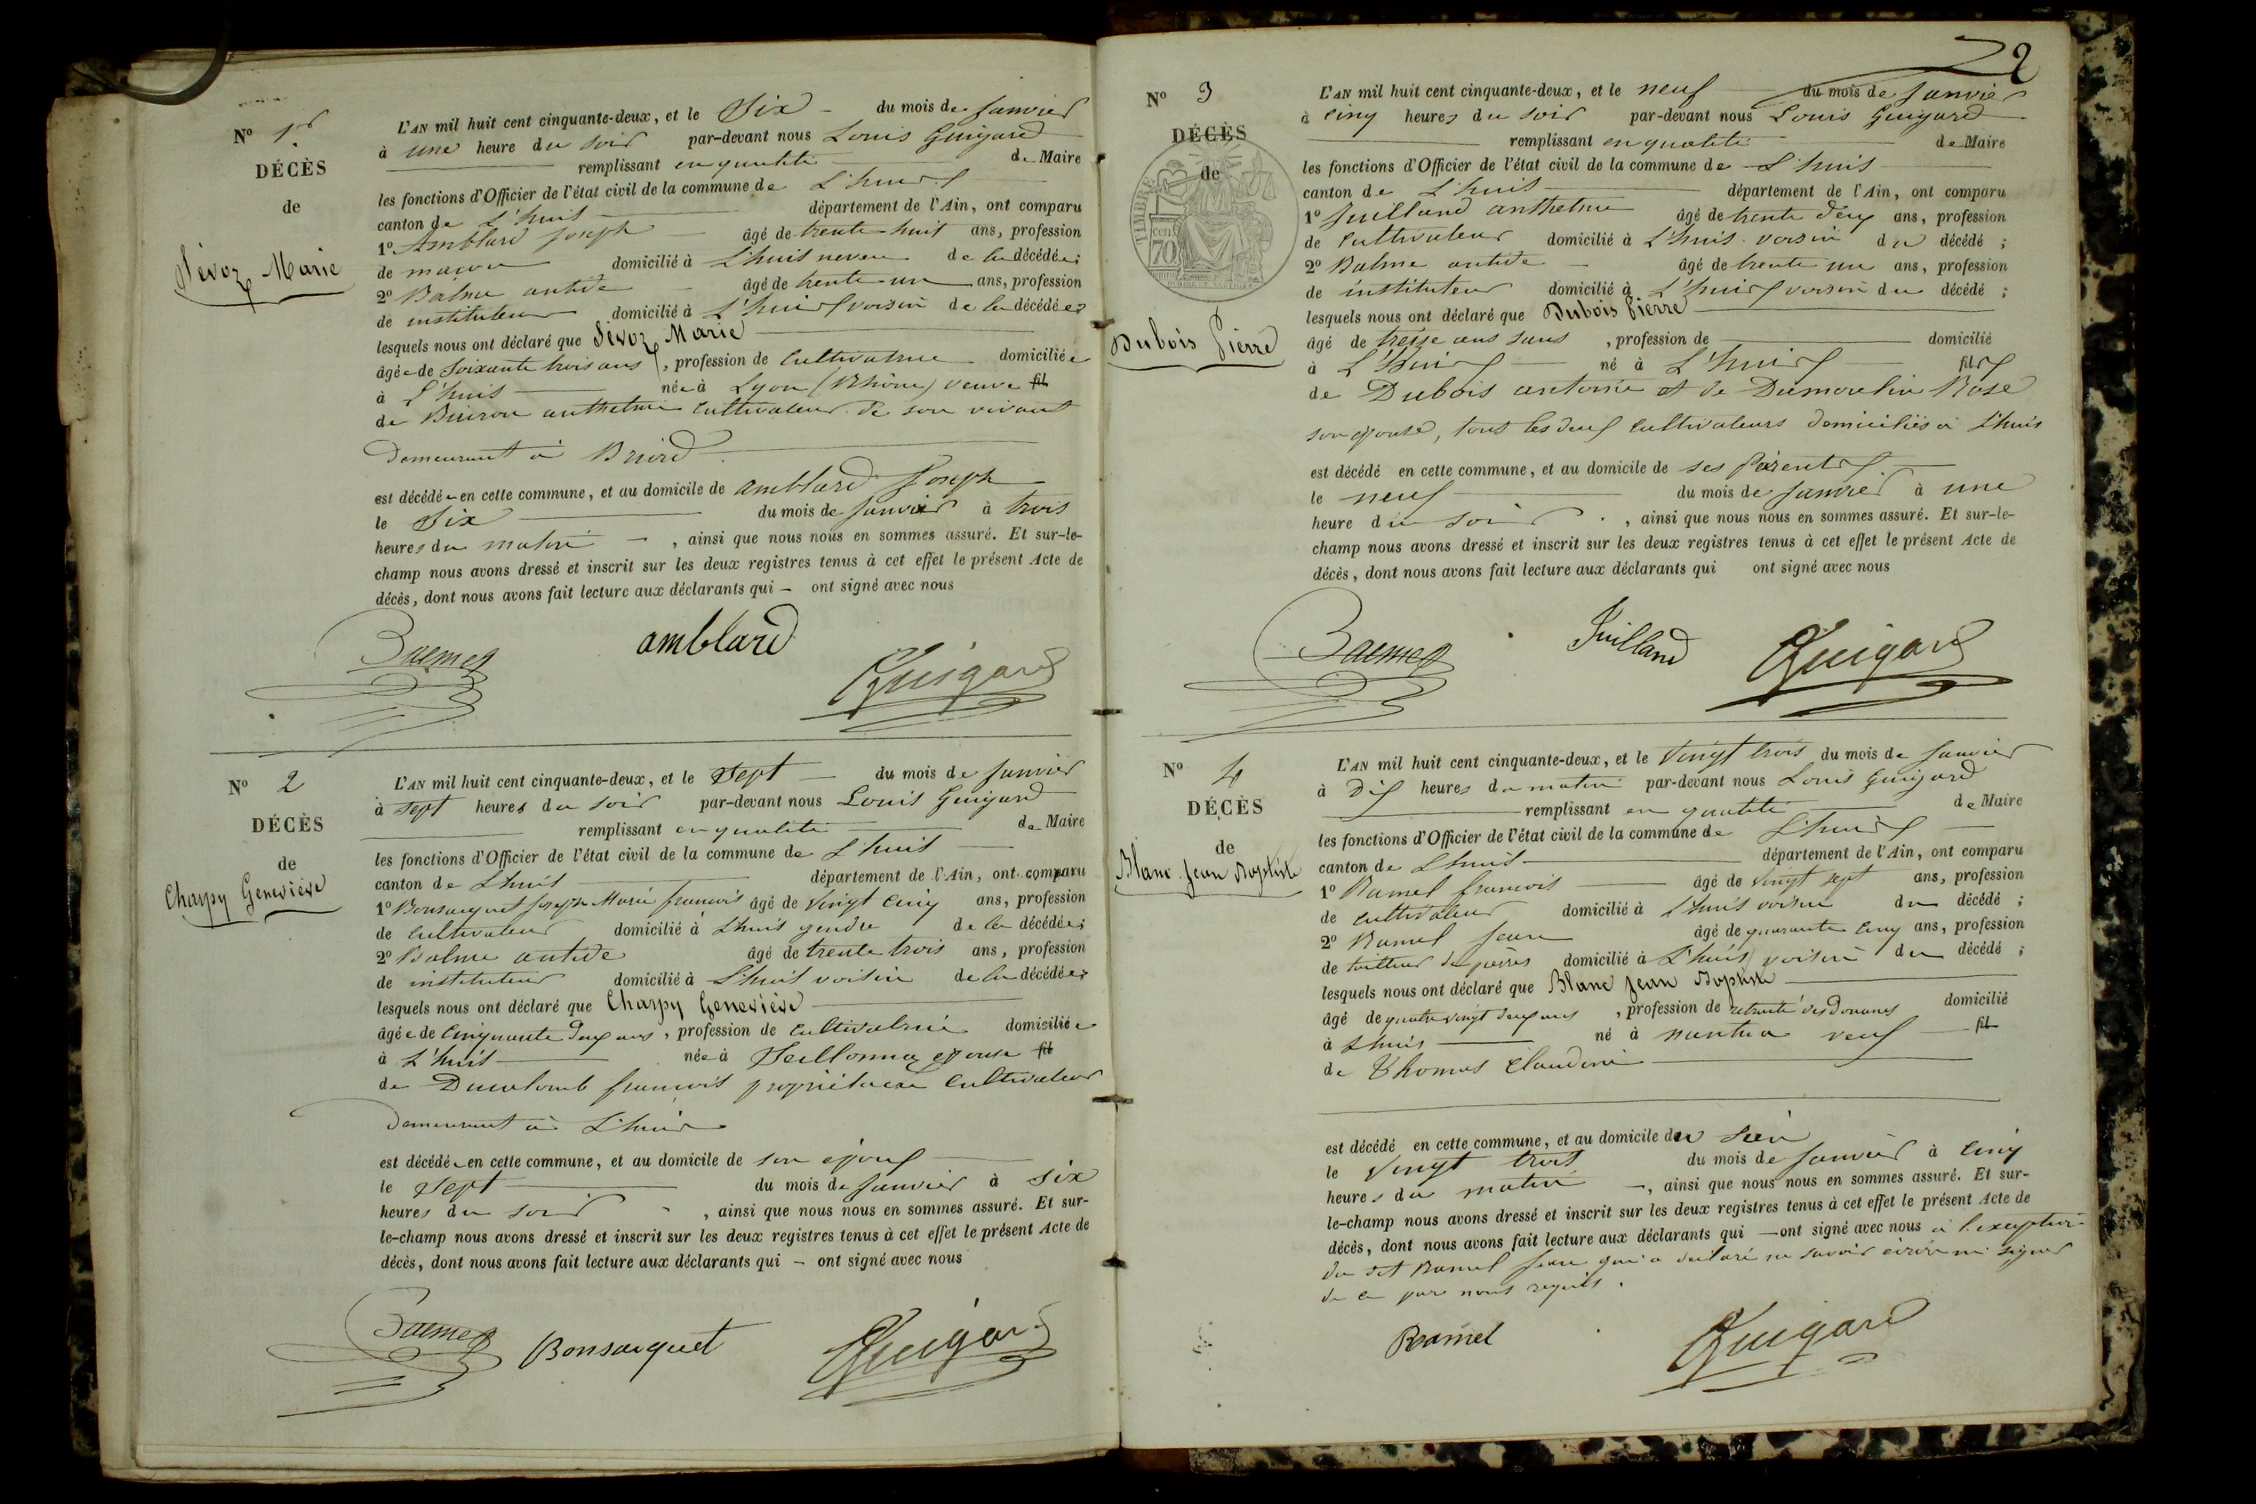 N° 1er
DÉCÈS
de
Sévoz Marie
L'AN mil huit cent cinquante-deux, et le Six du mois de Janvier
à une heure du soir par-devant nous Louis Guigard
remplissant en qualité de Maire
les fonctions d'Officier de l'état civil de la commune de L'huis
canton de L'huis département de l'Ain, ont comparu
1° Amblard Joseph âgé de trente huit ans, profession
de maçon domicilié à L'huis neveu de la décédée;
2° Balme antide âgé de trente un ans, profession
de instituteur domicilié à L'huis voisin de la décédée;
lesquels nous ont déclaré que Sévoz Marie
âgée de Soixante trois ans, profession de Cultivatrice domiciliée
à L'huis née à Lyon (Rhône) veuve fil
de anthelme cultivateur de son vivant
demeurant à Briord
est décédée en cette commune, et au domicile de amblard Joseph
le Six du mois de Janvier à trois
heures du matin, ainsi que nous nous en sommes assuré. Et sur-le-
champ nous avons dressé et inscrit sur les deux registres tenus à cet effet le présent Acte de
décès, dont nous avons fait lecture aux déclarants qui ont signé avec nous
amblard
Guigard
N° 2
DÉCÈS
de
Charpy Geneviève
L'AN mil huit cent cinquante-deux, et le Sept du mois de Janvier
à Sept heures du soir par-devant nous Louis Guigard
remplissant en qualité de Maire
les fonctions d'Officier de l'état civil de la commune de L'huis
canton de L'huis département de l'Ain, ont comparu
1° Bonsacquet Joseph Marie françois âgé de Vingt Cinq ans, profession
de Cultivateur domicilié à L'huis gendre de la décédée;
2° Balme antide âgé de trente trois ans, profession
de instituteur domicilié à L'huis voisin de la décédée;
lesquels nous ont déclaré que Charpy Geneviève
âgée de Cinquante Deux ans, profession de Cultivatrice domiciliée
à L'huis née à Seillonnaz épouse fil
de Ducolomb françois propriétaire Cultivateur
Demeurant à L'huis
est décédée en cette commune, et au domicile de son époux
le Sept du mois de Janvier à Six
heures du soir, ainsi que nous nous en sommes assuré. Et sur-
le-champ nous avons dressé et inscrit sur les deux registres tenus à cet effet le présent Acte de
décès, dont nous avons fait lecture aux déclarants qui ont signé avec nous
Bonsacquet
Guigard
2
N° 3
DÉCÈS
de
TIMBRE
70 cent
Dubois Pierre
L'AN mil huit cent cinquante-deux, et le neuf du mois de Janvier
à Cinq heures du soir par-devant nous Louis Guigard
remplissant en qualité de Maire
les fonctions d'Officier de l'état civil de la commune de L'huis
canton de L'huis département de l'Ain, ont comparu
1° Juilland anthelme âgé de trente deux ans, profession
de Cultivateur domicilié à L'huis voisin du décédé;
2° Balme antide âgé de trente un ans, profession
de instituteur domicilié à L'huis voisin du décédé;
lesquels nous ont déclaré que Dubois Pierre
âgé de treize ans sans, profession de domicilié
à L'huis né à L'huis fils
de Dubois antoine et de Dumoulin Rose
son épouse, tous les deux Cultivateurs domiciliés à L'huis
est décédé en cette commune, et au domicile de ses Parents
le neuf du mois de Janvier à une
heure du soir, ainsi que nous nous en sommes assuré. Et sur-le-
champ nous avons dressé et inscrit sur les deux registres tenus à cet effet le présent Acte de
décès, dont nous avons fait lecture aux déclarants qui ont signé avec nous
Juilland
Guigard
N° 4
DÉCÈS
de
Blanc Jean Baptiste
L'AN mil huit cent cinquante-deux, et le Vingt trois du mois de Janvier
à Dix heures du matin par-devant nous Louis Guigard
remplissant en qualité de Maire
les fonctions d'Officier de l'état civil de la commune de L'huis
canton de L'huis département de l'Ain, ont comparu
1° Ramel françois âgé de Vingt sept ans, profession
de cultivateur domicilié à L'huis voisin du décédé;
2° Ramel Jean âgé de quarante Cinq ans, profession
de tailleur de pierres domicilié à L'huis voisin du décédé;
lesquels nous ont déclaré que Blanc Jean Baptiste
âgé de quatre vingt deux ans, profession de retraité des Douanes domicilié
à L'huis né à nantua veuf fil
de Thomas Claudine
est décédé en cette commune, et au domicile du Sien
le Vingt trois du mois de Janvier à Cinq
heures du matin, ainsi que nous nous en sommes assuré. Et sur-
le-champ nous avons dressé et inscrit sur les deux registres tenus à cet effet le présent Acte de
décès, dont nous avons fait lecture aux déclarants qui ont signé avec nous à l'exception
du dit Ramel Jean qui a déclaré ne savoir écrire ni signer
de ce par nous requis.
Ramel
Guigard